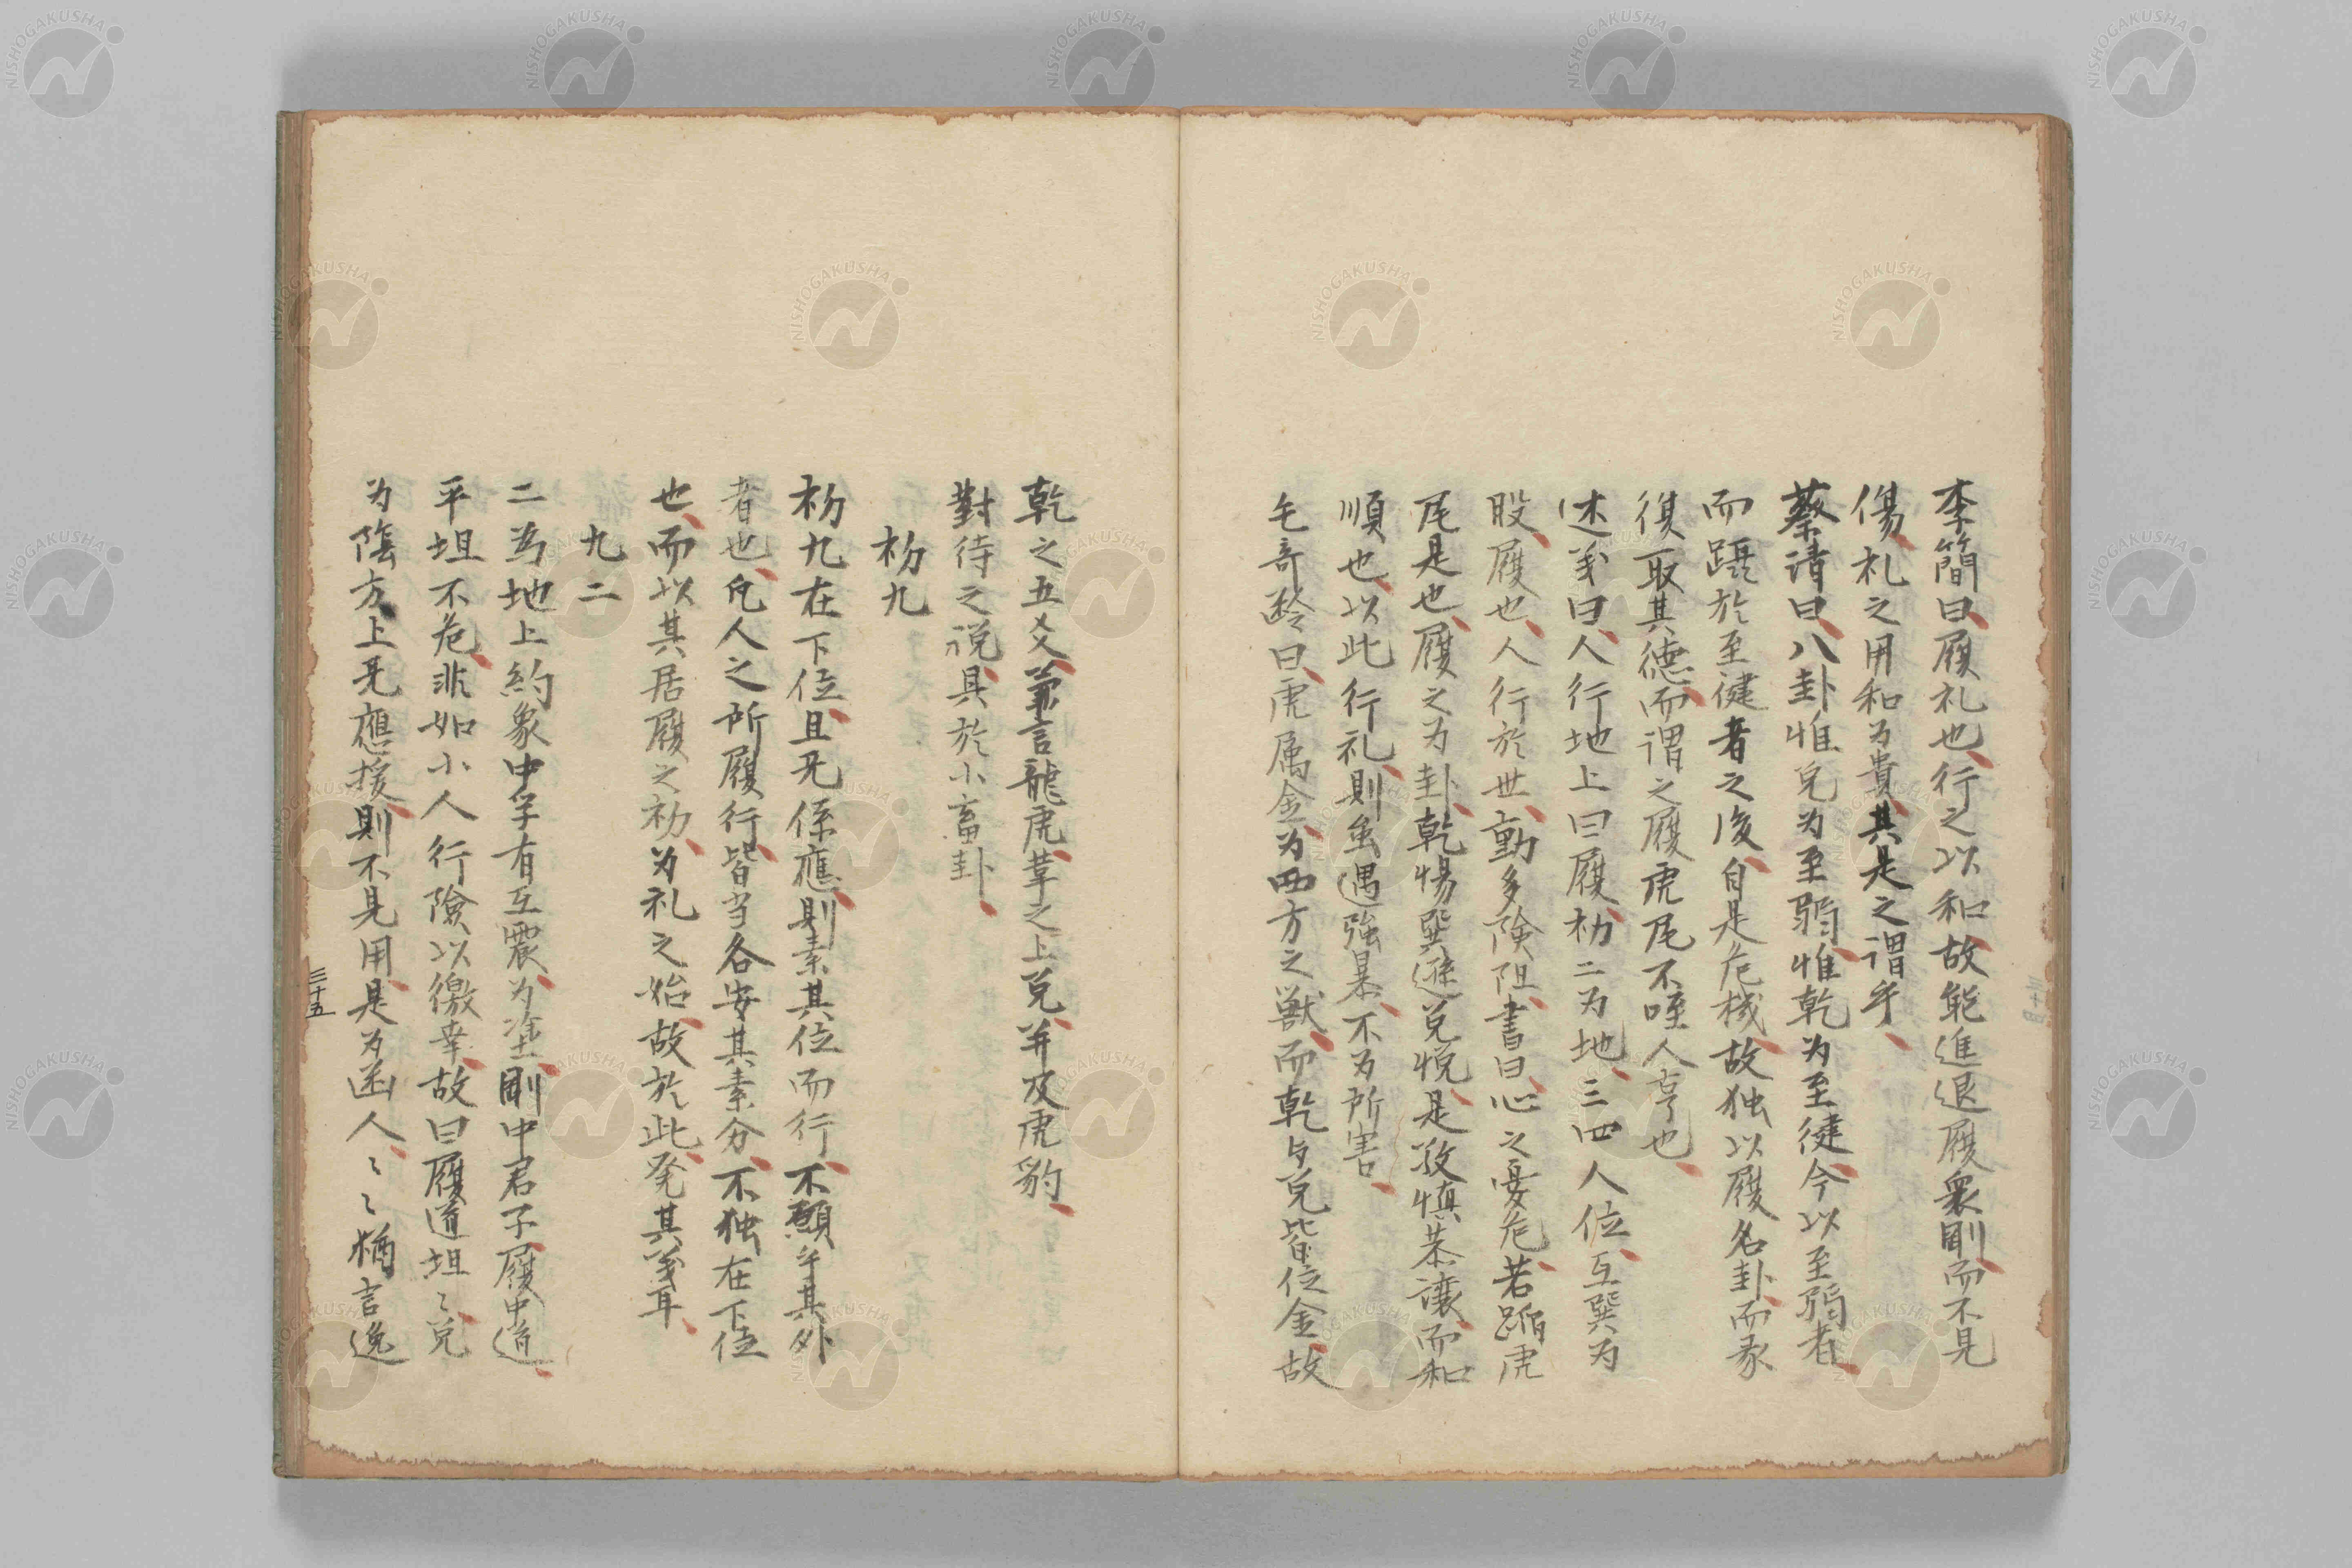 李簡曰履礼也行之以和故能進退履衆剛而不見
傷礼之用和为貴其是之謂乎
蔡清曰八卦惟兌为至弱惟乾为至健今以至弱者
而躡於至健者之後自是危機故独以履名卦而彖
復取其德而謂之履虎尾不咥人亨也
述義曰人行地上曰履初二为地三四人位互巽为
股履也人行於世動多險阻書曰心之憂危若蹈虎
尾是也履之为卦乾惕巽遜兌悦是敬慎恭讓而和
順也以此行礼則虽遇強暴不为所害
毛奇齡曰虎属金为西方之獣而乾与兌皆位金故
乾之五爻兼言龍虎革之上兌并及虎豹
對待之説具於小畜卦
初九
初九在下位且旡係應則素其位而行不願乎其外
者也凡人之所履行皆当各安其素分不独在下位
也而以其居履之初为礼之始故於此発其義耳
九二
二为地上約象中孚有互震为塗剛中君子履中道
平坦不危非如小人行險以徼幸故曰履道坦〻兌
为陰方上旡應援則不見用是为幽人〻〻猶言逸
三十五
NISHOGAKUSHA